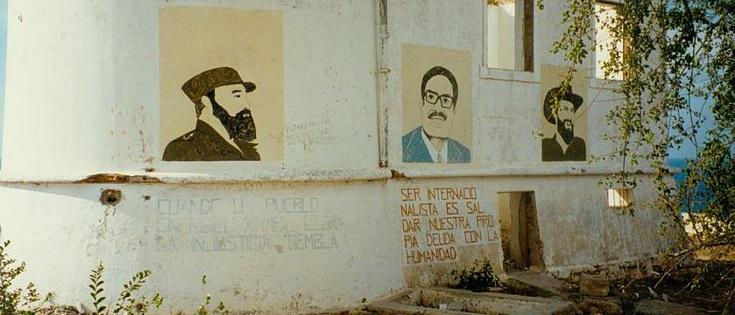 CUANDO U PUEBLO
LA INJUSTICIA TIEMBLA
SER INTERNACIO
NALISTA ES SAL
DAR NUESTRA PRO
PIA DEUDA CON LA
HUMANIDAD